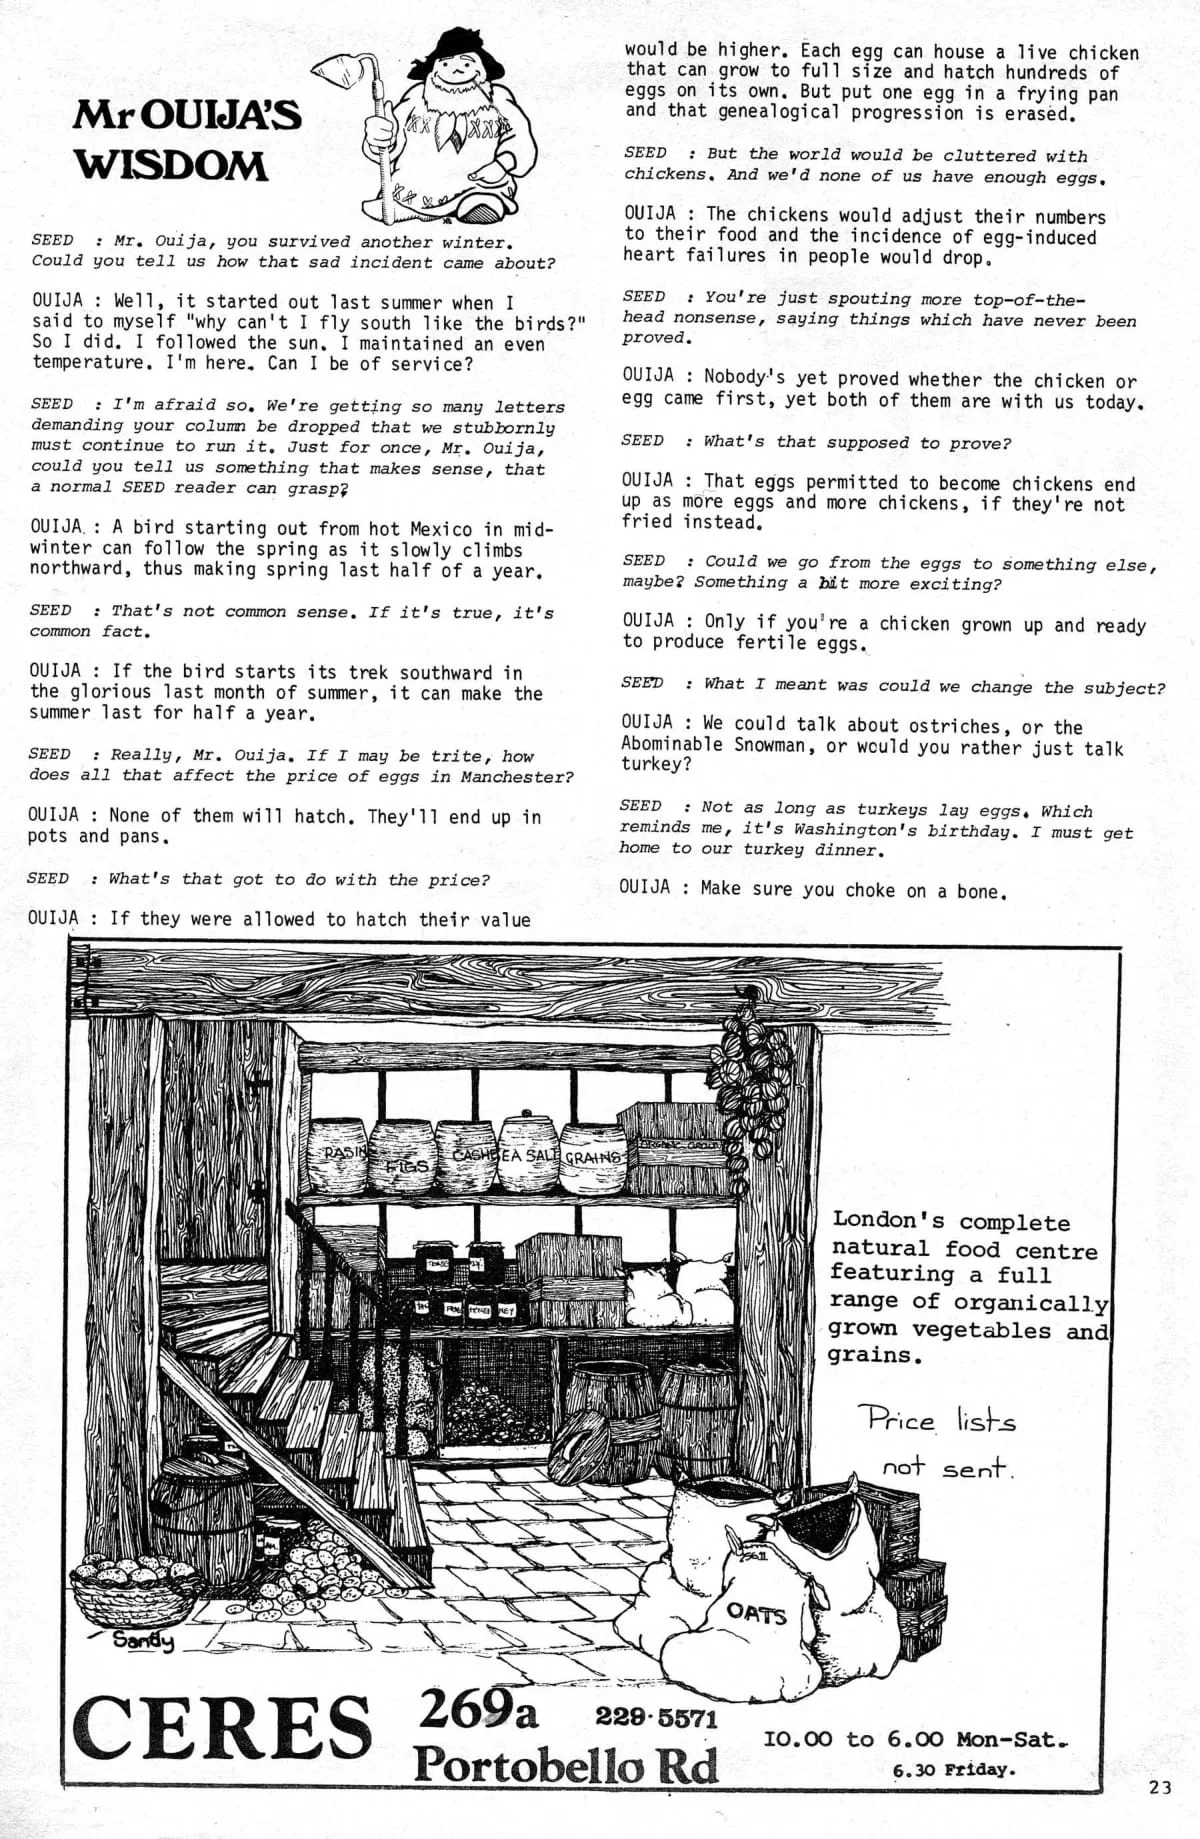 Mr OUIJA'S
WISDOM
SEED : Mr. Ouija, you survived another winter.
Could you tell us how that sad incident came about?
OUIJA : Well, it started out last summer when I
said to myself "why can't I fly south like the birds?"
So I did. I followed the sun. I maintained an even
temperature. I'm here. Can I be of service?
SEED : I'm afraid so. We're getting so many letters
demanding your column be dropped that we stubbornly
must continue to run it. Just for once, Mr. Ouija,
could you tell us something that makes sense, that
a normal SEED reader can grasp?
OUIJA : A bird starting out from hot Mexico in mid-
winter can follow the spring as it slowly climbs
northward, thus making spring last half of a year.
SEED : That's not common sense. If it's true, it's
common fact.
OUIJA : If the bird starts its trek southward in
the glorious last month of summer, it can make the
summer last for half a year.
SEED : Really, Mr. Ouija. If I may be trite, how
does all that affect the price of eggs in Manchester?
OUIJA : None of them will hatch. They'll end up in
pots and pans.
SEED : What's that got to do with the price?
OUIJA : If they were allowed to hatch their value
would be higher. Each egg can house a live chicken
that can grow to full size and hatch hundreds of
eggs on its own. But put one egg in a frying pan
and that genealogical progression is erased.
SEED : But the world would be cluttered with
chickens. And we'd none of us have enough eggs.
OUIJA : The chickens would adjust their numbers
to their food and the incidence of egg-induced
heart failures in people would drop.
SEED : You're just spouting more top-of-the-
head nonsense, saying things which have never been
proved.
OUIJA : Nobody's yet proved whether the chicken or
egg came first, yet both of them are with us today.
SEED : What's that supposed to prove?
OUIJA : That eggs permitted to become chickens end
up as more eggs and more chickens, if they're not
fried instead.
SEED : Could we go from the eggs to something else,
maybe? Something a bit more exciting?
OUIJA : Only if you're a chicken grown up and ready
to produce fertile eggs.
SEED : What I meant was could we change the subject?
OUIJA : We could talk about ostriches, or the
Abominable Snowman, or would you rather just talk
turkey?
SEED : Not as long as turkeys lay eggs. Which
reminds me, it's Washington's birthday. I must get
home to our turkey dinner.
OUIJA : Make sure you choke on a bone.
RASIN
FIGS
CASHE
EA SALT
GRAINS
ORGANIC GROW
London's complete
natural food centre
featuring a full
range of organically
grown vegetables and
grains.
Price lists
not sent.
56lb
OATS
Sandy
CERES
269a
229·5571
Portobello Rd
10.00 to 6.00 Mon-Sat.
6.30 Friday.
23